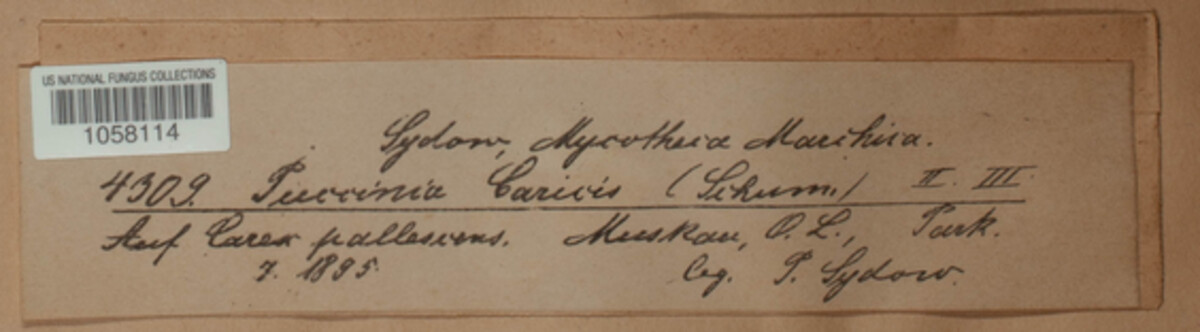 US NATIONAL FUNGUS COLLECTIONS
1058114
Sydow, Mycotheca Marchica.
4309. Puccinia Caricis (Schum.) II. III.
Auf Carex pallescens. Muskau, O. L., Park.
7. 1895. leg. P. Sydow.